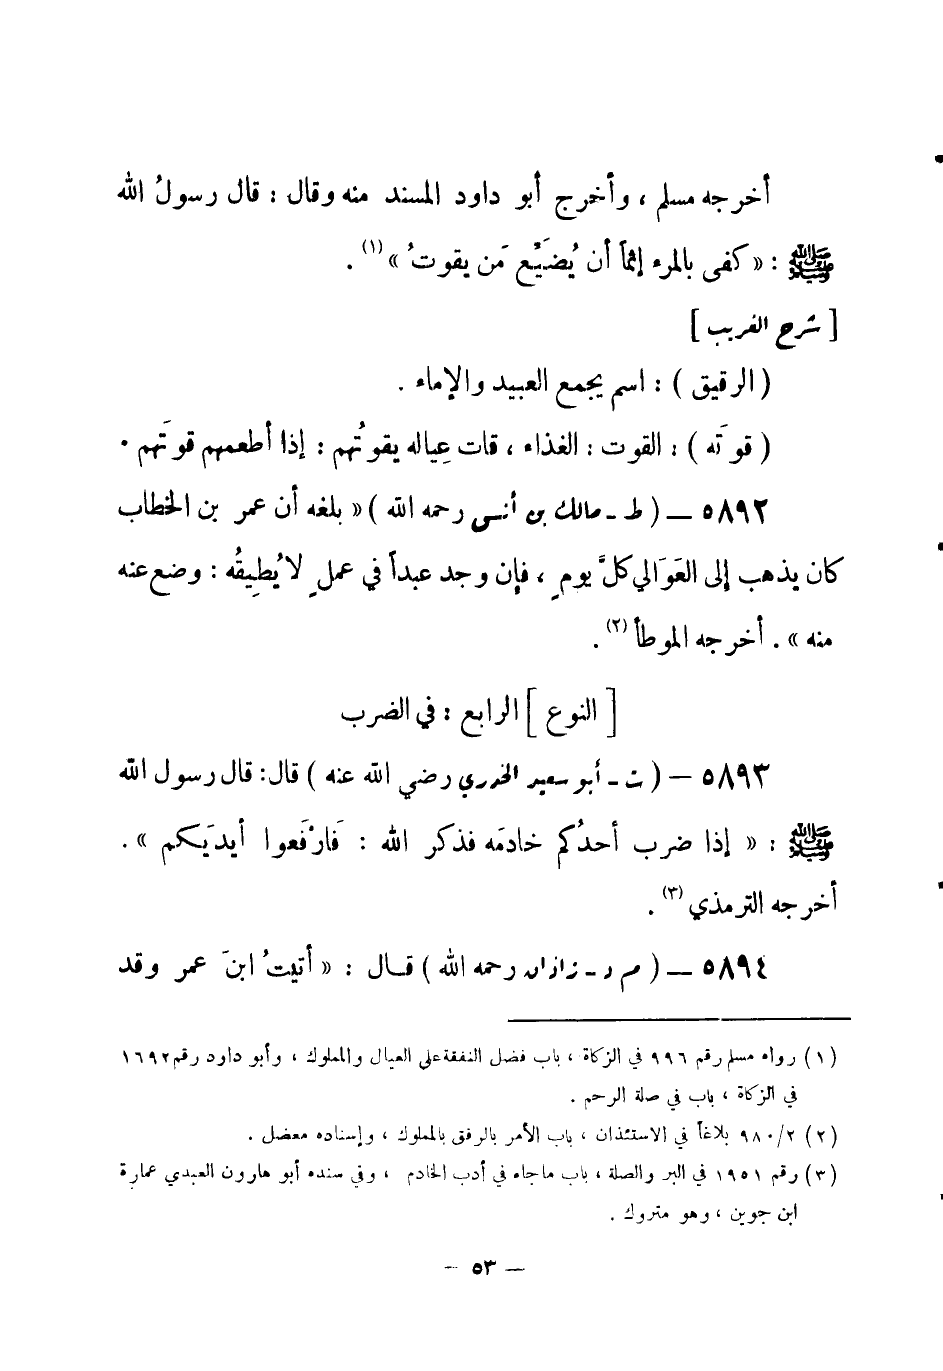 أخرجه مسلم ، وأخرج أبو داود المسند منه وقال : قال رسولُ الله
ﷺ : « كفى بالمرء إثماً أن يُضَيِّع مَن يقوتُ »(١) .
[ شرح الغريب ]
( الرقيق ) : اسم يجمع العبيد والإماء .
( قوتَه ) : القوت : الغذاء ، قات عِياله يقوتُهم : إذا أطعمهم قوتَهم .
٥٨٩٢ – ( ط - مالك بن أنس رحمه الله ) « بلغه أن عمر بن الخطاب
كان يذهب إلى العَوَالي كلَّ يومٍ ، فإن وجد عبداً في عملٍ لا يُطِيقُه : وضع عنه
منه » . أخرجه الموطأ(٢) .
[ النوع ] الرابع : في الضرب
٥٨٩٣ – ( ت - أبو سعيد الخدري رضي الله عنه ) قال : قال رسول الله
ﷺ : « إذا ضرب أحدُكم خادمَه فذكر الله : فَارْفَعوا أيديَكم » .
أخرجه الترمذي(٣) .
٥٨٩٤ – ( م د - زاذان رحمه الله ) قال : « أتيتُ ابنَ عمر وقد
(١) رواه مسلم رقم ٩٩٦ في الزكاة ، باب فضل النفقة على العيال والمملوك ، وأبو داود رقم ١٦٩٢
في الزكاة ، باب في صلة الرحم .
(٢) ٩٨٠/٢ بلاغاً في الاستئذان ، باب الأمر بالرفق بالمملوك ، وإسناده معضل .
(٣) رقم ١٩٥١ في البر والصلة ، باب ماجاء في أدب الخادم ، وفي سنده أبو هارون العبدي عمارة
ابن جوين ، وهو متروك .
– ٥٣ –